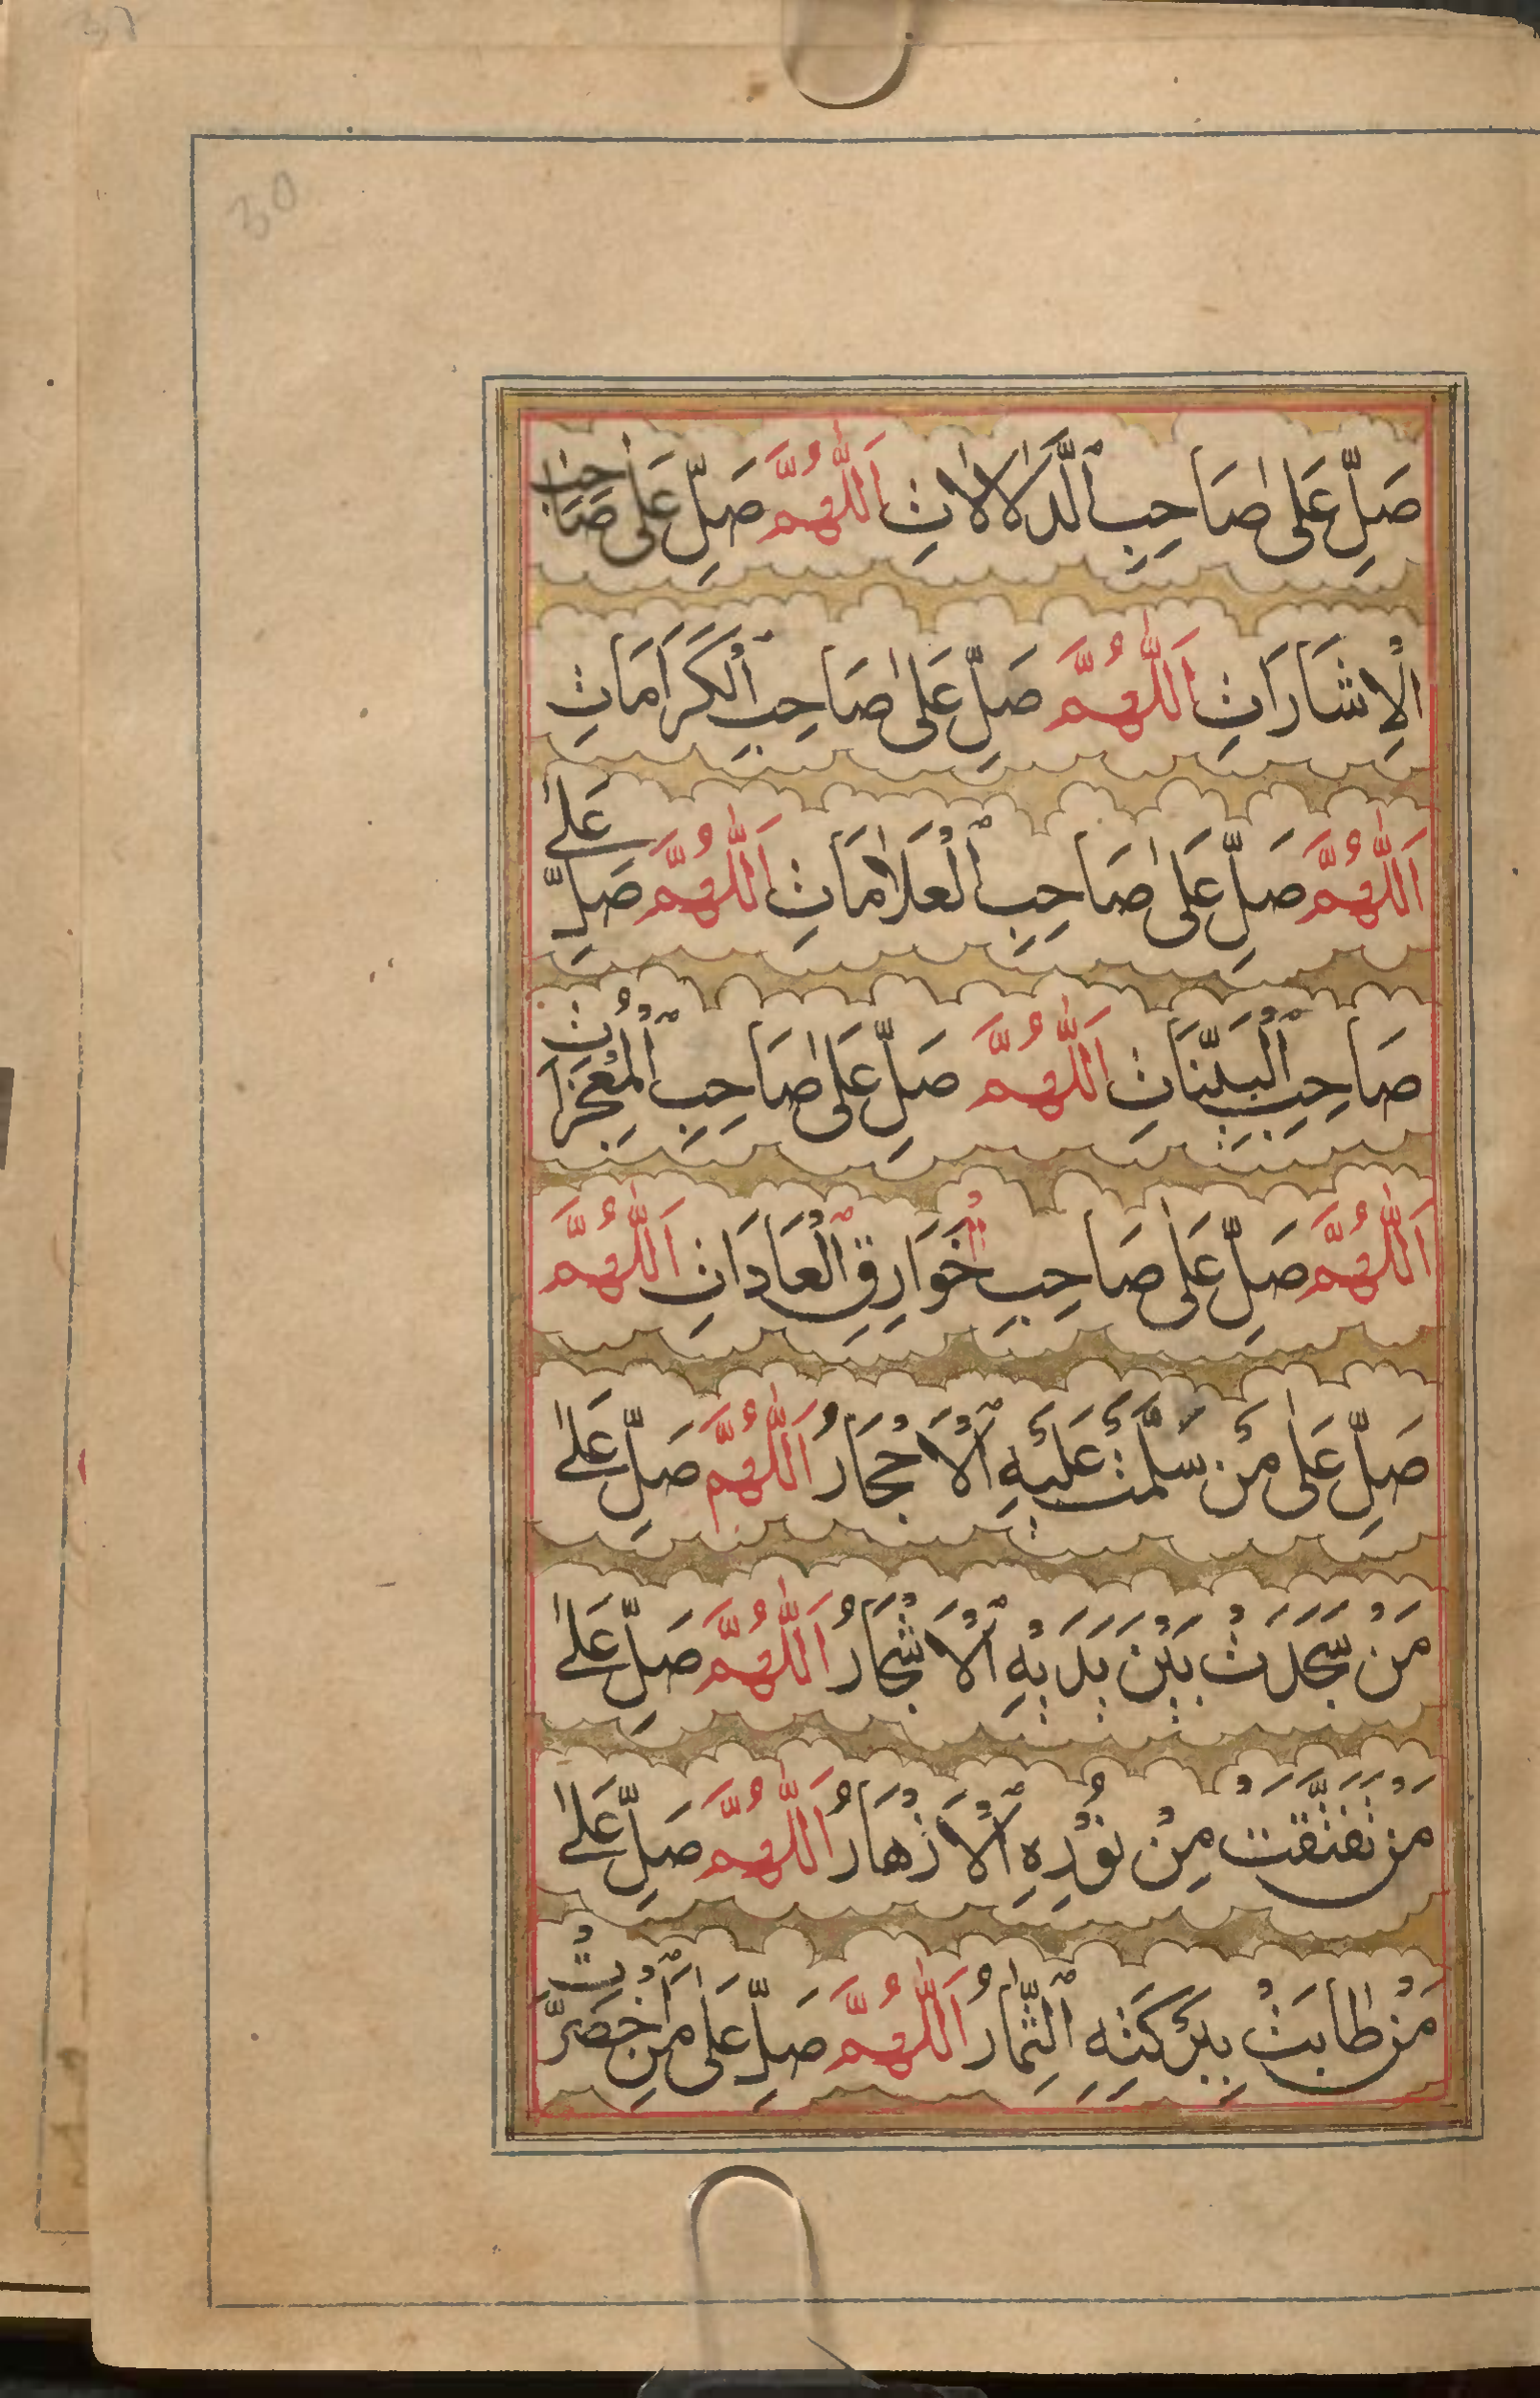 30
صَلِّ عَلٰى صَاحِبِ ٱلدَّلَالَاتِ اَللّٰهُمَّ صَلِّ عَلٰى صَاحِبِ
الْاِشَارَاتِ اَللّٰهُمَّ صَلِّ عَلٰى صَاحِبِ ٱلْكَرَامَاتِ
اَللّٰهُمَّ صَلِّ عَلٰى صَاحِبِ ٱلْعَلَامَاتِ اَللّٰهُمَّ صَلِّ عَلٰى
صَاحِبِ ٱلْبَيِّنَاتِ اَللّٰهُمَّ صَلِّ عَلٰى صَاحِبِ ٱلْمُعْجِزَاتِ
اَللّٰهُمَّ صَلِّ عَلٰى صَاحِبِ الْخَوَارِقِ ٱلْعَادَاتِ اَللّٰهُمَّ
صَلِّ عَلٰى مَنْ سَلَّمَتْ عَلَيْهِ ٱلْاَحْجَارُ اَللّٰهُمَّ صَلِّ عَلٰى
مَنْ سَجَدَتْ بَيْنَ يَدَيْهِ ٱلْاَشْجَارُ اَللّٰهُمَّ صَلِّ عَلٰى
مَنْ تَفَتَّقَتْ مِنْ نُوْرِهِ ٱلْاَزْهَارُ اَللّٰهُمَّ صَلِّ عَلٰى
مَنْ طَابَتْ بِبَرَكَتِهِ ٱلثِّمَارُ اَللّٰهُمَّ صَلِّ عَلٰى مَنِ ٱخْضَرَّتْ